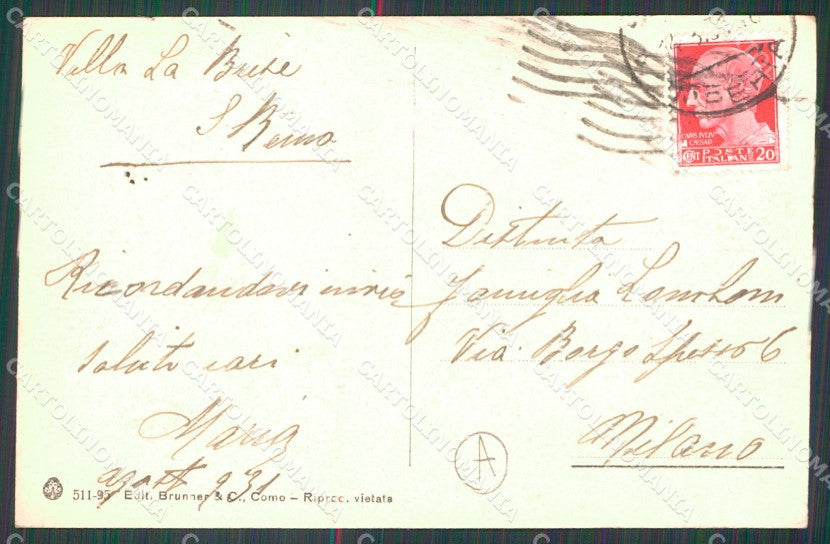 Villa La Brise
S Remo
Ricordandovi invio
saluti cari
Maria
agost 931
511-95 Edit. Brunner & C., Como – Riprod. vietata
CAIVS IVLIV
CAESAR
CENT POSTE ITALIANE 20
Distinta
Famiglia
Via Borgo Spesso 6
Milano
A
CARTOLINOMANIA